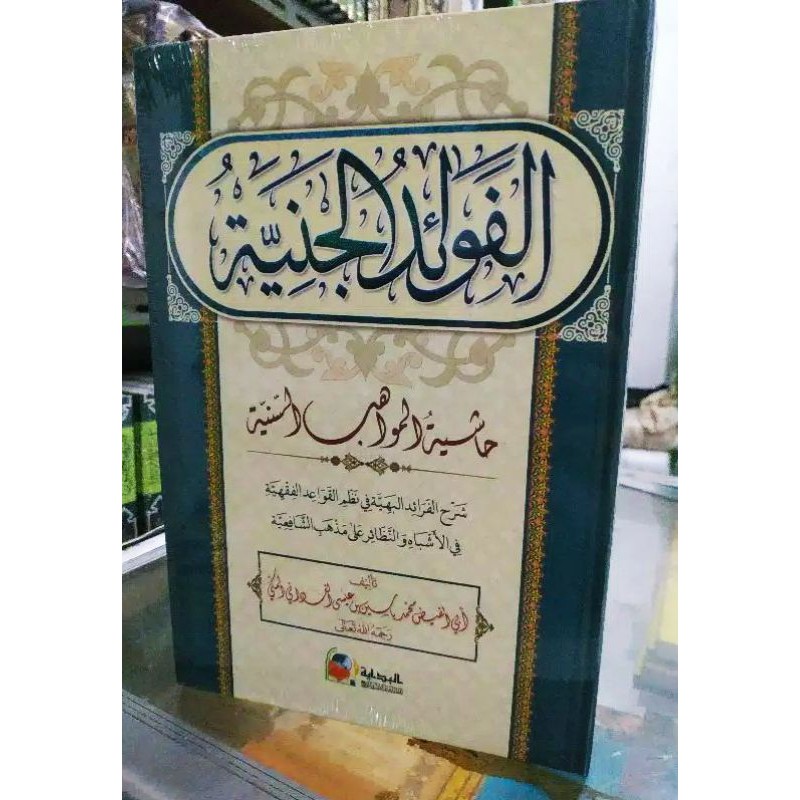 الفَوَائِدُ الجَنِيَّةُ
حاشيةُ المواهب السَّنيَّة
شَرْح الفَرَائِد البَهِيَّة فِي نَظْمِ القَوَاعِد الفِقْهِيَّة
فِي الأَشْبَاهِ وَالنَّظَائِر عَلَى مَذْهَبِ الشَّافِعِيَّة
تأليف
أبي الفيض محمد ياسين بن عيسى الفاداني المكي
رحمه الله تعالى
البداية